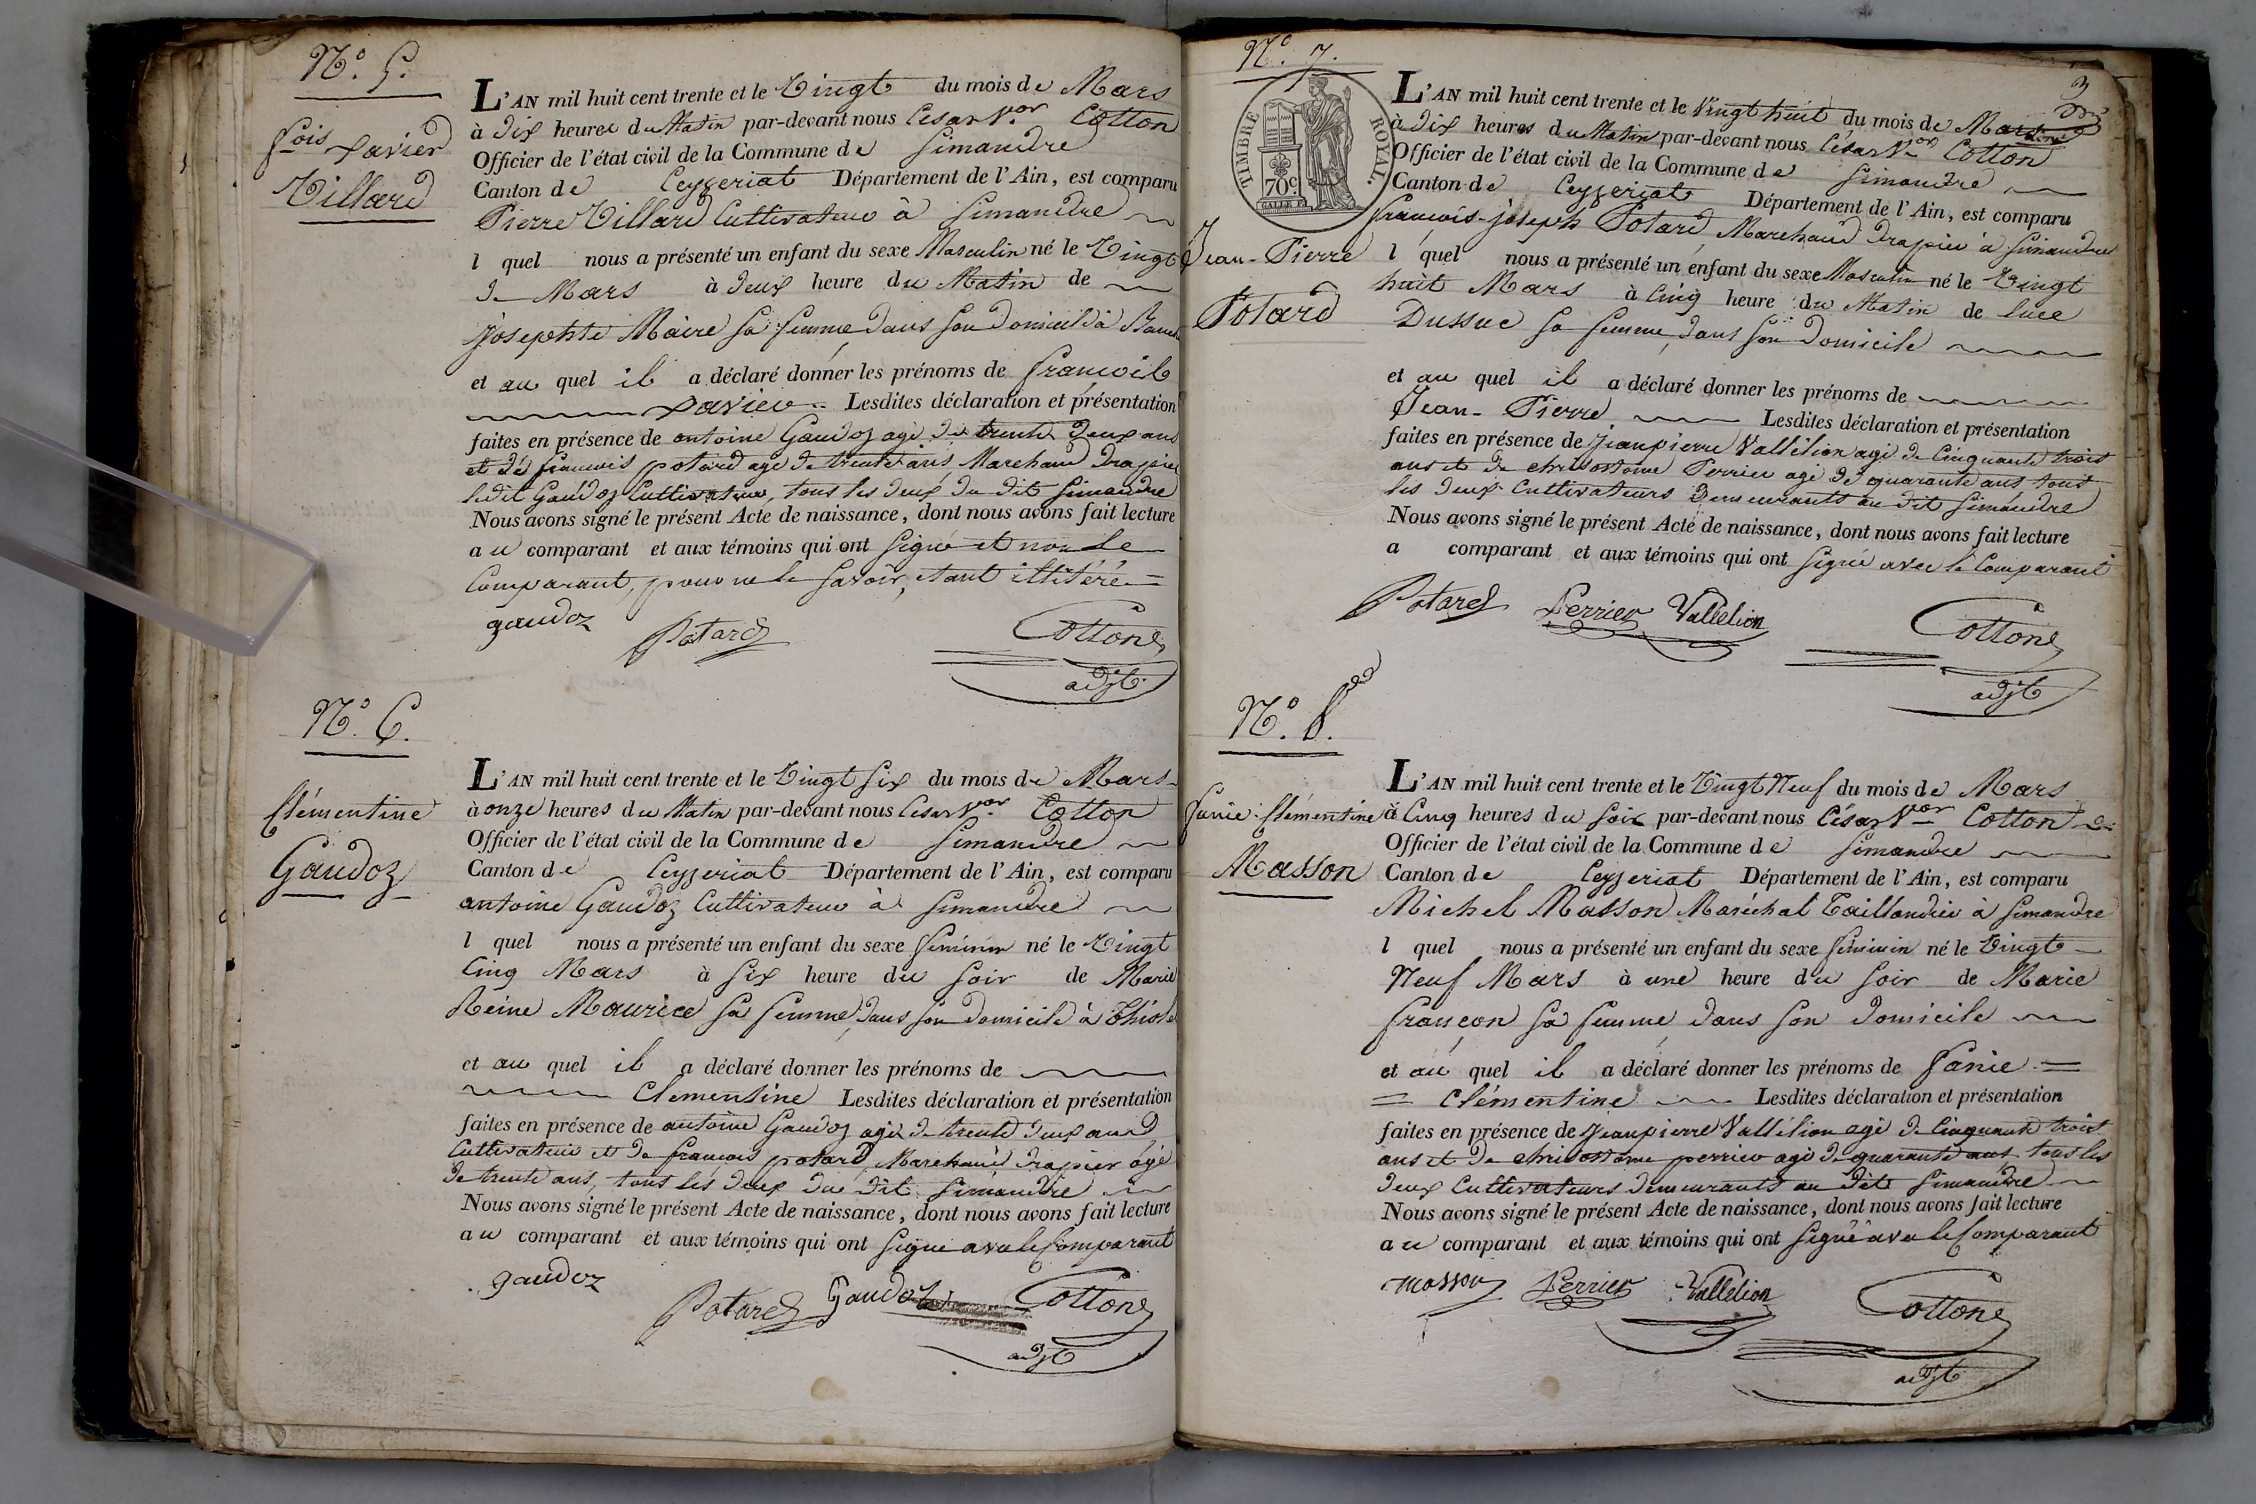 N.o 5.
fois Xavier
Villard
L'AN mil huit cent trente et le Vingt du mois de Mars
à Dix heures du Matin par-devant nous César V.or Cotton
Officier de l'état civil de la Commune de Simandre
Canton de Ceyzeriat Département de l'Ain, est comparu
Pierre Villard Cultivateur à Simandre
l quel nous a présenté un enfant du sexe Masculin né le Vingt
de Mars à deux heure du Matin de
Josephte Maire sa femme, dans son domicile à
et au quel il a déclaré donner les prénoms de francois
Xavier Lesdites déclaration et présentation
faites en présence de antoine Gaudoz agé de trente deux ans
et de francois potard age de trente ans Marchand Drapier
ledit Gaudoz Cultivateur, tous les deux du dit Simandre
Nous avons signé le présent Acte de naissance, dont nous avons fait lecture
au comparant et aux témoins qui ont signé et non le
Comparant, pour ne le savoir, étant illitéré
gaudoz Potard Cotton
adjt
N.o 6.
Clémentine
Gaudoz
L'AN mil huit cent trente et le Vingt six du mois de Mars
à onze heures du Matin par-devant nous César V.or Cotton
Officier de l'état civil de la Commune de Simandre
Canton de Ceyzeriat Département de l'Ain, est comparu
antoine Gaudoz Cultivateur à Simandre
l quel nous a présenté un enfant du sexe féminin né le Vingt
Cinq Mars à six heure du soir de Marie
Reine Maurice sa femme, dans son domicile à Thiole
et au quel il a déclaré donner les prénoms de
Clementine Lesdites déclaration et présentation
faites en présence de antoine Gaudoz agé de trente deux ans
Cultivateur et de francois potard, Marchand drapier âgé
de trente ans, tous les deux du dit Simandre
Nous avons signé le présent Acte de naissance, dont nous avons fait lecture
au comparant et aux témoins qui ont signé avec le Comparant
gaudoz Potard Gaudoz Cotton
adjt
N.o 7.
3
TIMBRE ROYAL.
70c.
Jean-Pierre
Potard
L'AN mil huit cent trente et le Vingt huit du mois de Mars
à Dix heures du Matin par-devant nous César V.or Cotton
Officier de l'état civil de la Commune de Simandre
Canton de Ceyzeriat Département de l'Ain, est comparu
françois-joseph Potard Marchand drapier à Simandre
l quel nous a présenté un enfant du sexe Masculin né le Vingt
huit Mars à Cinq heure du Matin de Luce
Dussuc sa femme, dans son Domicile
et au quel il a déclaré donner les prénoms de
Jean-Pierre Lesdites déclaration et présentation
faites en présence de Jeanpierre Vallélion agé de Cinquante trois
ans et de chrisostome Perrier agé de quarante ans tous
les deux Cultivateurs Demeurants au dit Simandre
Nous avons signé le présent Acte de naissance, dont nous avons fait lecture
a comparant et aux témoins qui ont signé avec le Comparant
Potard Perrier Vallelion Cotton
adjt
N.o 8.
fanie Clémentine
Masson
L'AN mil huit cent trente et le Vingt Neuf du mois de Mars
à Cinq heures du soir par-devant nous César V.or Cotton
Officier de l'état civil de la Commune de Simandre
Canton de Ceyzeriat Département de l'Ain, est comparu
Michel Masson Maréchal Taillandier à Simandre
l quel nous a présenté un enfant du sexe féminin né le Vingt
Neuf Mars à une heure du soir de Marie
françon sa femme, dans son Domicile
et au quel il a déclaré donner les prénoms de fanie
Clémentine Lesdites déclaration et présentation
faites en présence de Jeanpierre Vallélion agé de Cinquante trois
ans et de chrisostome perrier agé de quarante ans, tous les
deux Cultivateurs demeurants au dit Simandre
Nous avons signé le présent Acte de naissance, dont nous avons fait lecture
au comparant et aux témoins qui ont signé avec le Comparant
masson Perrier Vallelion Cotton
adjt